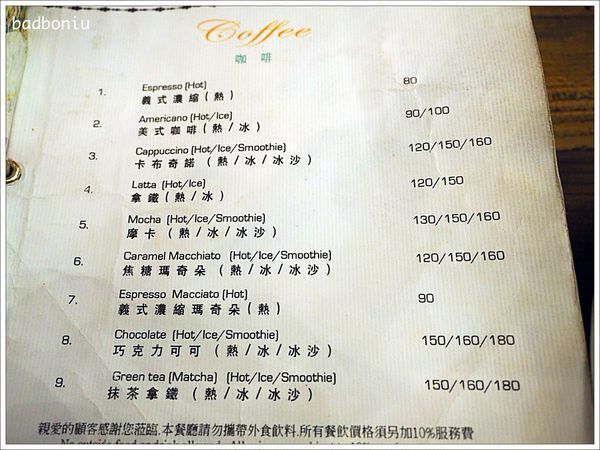 badboniu
Coffee
咖啡
1. Espresso (Hot) 80
義式濃縮(熱)
2. Americano (Hot/Ice) 90/100
美式咖啡(熱/冰)
3. Cappuccino (Hot/Ice/Smoothie) 120/150/160
卡布奇諾 (熱/冰/冰沙)
4. Latta (Hot/Ice) 120/150
拿鐵(熱/冰)
5. Mocha (Hot/Ice/Smoothie) 130/150/160
摩卡 (熱/冰/冰沙)
6. Caramel Macchiato (Hot/Ice/Smoothie) 120/150/160
焦糖瑪奇朵 (熱/冰/冰沙)
7. Espresso Macciato (Hot) 90
義式濃縮瑪奇朵(熱)
8. Chocolate (Hot/Ice/Smoothie) 150/160/180
巧克力可可 (熱/冰/冰沙)
9. Green tea (Matcha) (Hot/Ice/Smoothie) 150/160/180
抹茶拿鐵 (熱/冰/冰沙)
親愛的顧客感謝您蒞臨.本餐廳請勿攜帶外食飲料.所有餐飲價格須另加10%服務費
No outside food